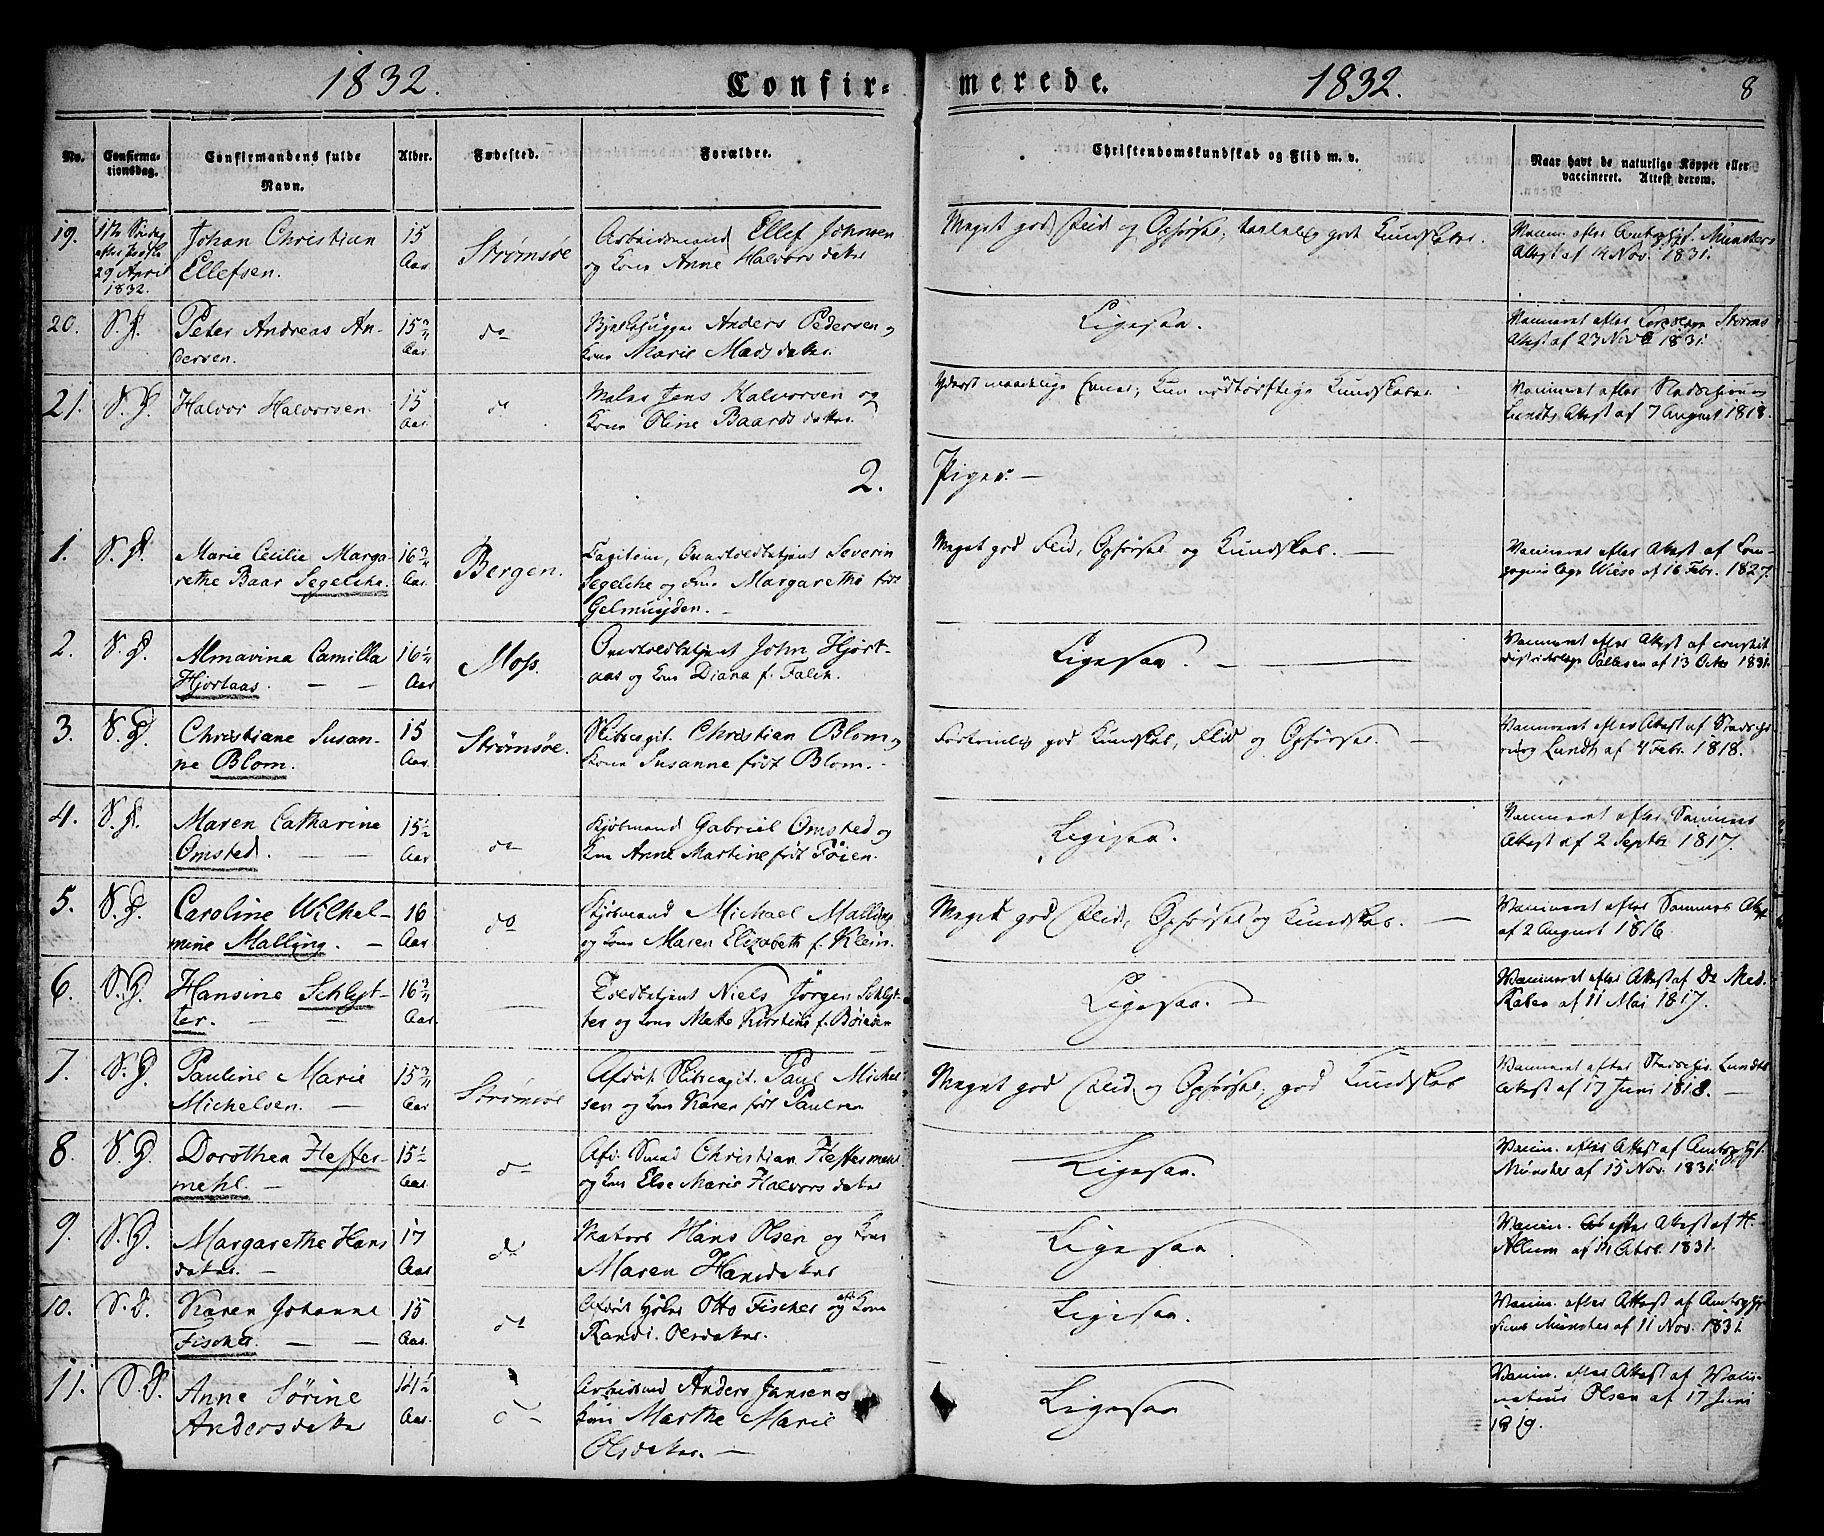 1832. Confir=
merede. 1832. 8
No. Confirma-tionsdag. Confirmandens fulde Navn. Alder. Fødested. Forældre. Christendomskundskab og Flid m. v. Naar havt de naturlige Kopper eller vaccineret. Attest derom.
19. 1ste Søndag efter Paaske 29 April 1832. Johan Christian Ellefsen. 15 Aar Strømsøe Arbeidsmand Ellef Johnsen og Kone Anne Halvorsdatter Meget god Flid og Opførsel, temmelig god Kundskaber. Vaccin. efter Amtschir. Münsters Attest af 14 Nov. 1831.
20. S. D. Peter Andreas Andersen. 15¾ Aar do Anders Pedersen og Kone Marie Madsdatter. Ligesaa. Vaccineret efter Storms Attest af 23 Novb 1831.
21. S. D. Halvor Halvorsen. 15 Aar do Maler Jens Halvorsen og Kone Oline Baardsdatter. Yderst maadelige Evner, kun nødtørftige Kundskaber. Vaccineret efter Stadschirurg Lundts Attest af 7 August 1818.
2. Piger. —
1. S. D. Marie Cecilie Margarethe Baar Segelche. 16¾ Aar. Bergen. Capitain, Overtoldbetjent Severin Segelche og Kone Margarethe født Gelmuyden. — Meget god Flid, Opførsel og Kundskab. — Vaccineret efter Attest af Wiese af 16 Febr. 1827.
2. S. D. Almavina Camilla Hjortaas. — — 16¼ Aar Moss. Overtoldbetjent John Hjortaas og Kone Diana f. Falch. Ligesaa. — — Vaccineret efter Attest af constit districtslæge Pallesen af 13 Octbr 1831.
3. S. D. Christiane Susanne Blom. 15 Aar. Strømsøe. Skibscapit. Christian Blom og Kone Susanne født Blom. — Fortrinlig god Kundskab, Flid og Opførsel. — Vaccineret efter Attest af Stadschirurg Lundt af 4 Febr. 1818.
4. S. D. Maren Catharine Omsted. — — 15½ Aar do Kjøbmand Gabriel Omsted og Kone Anne Martine født Føien. Ligesaa. Vaccineret efter Attest af 2 Septbr 1817.
5. S. D. Caroline Wilhelmine Malling. — 16 Aar. do Kjøbmand Michael Malling og Kone Maren Elizabeth f. Klein. Meget god Flid, Opførsel og Kundskab. — Vaccineret efter Attest af 2 August 1816.
6. S. D. Hansine Schlytter. — — 16¾ Aar. — Toldbetjent Niels Jørgen Schlytter og Kone Mette Kirstine f. Ligesaa. — Vaccineret efter Attest af Dr Med. af 11 Mai 1817.
7. S. D. Pauline Marie Michelsen. — 15¾ Aar Strømsøe Afdøde Skibscapit. Paul Michelsen og Kone Karen født Paulsen Meget god Flid og Opførsel, god Kundskab Vaccineret efter Stadschir. Lundts Attest af 17 Juni 1818. —
8. S. D. Dorothea Heffermehl. — 15½ Aar. do Afd. Smed Christian Heffermehl og Kone Else Marie Halvorsdatter Ligesaa. Vaccin. efter Attest af Amtschir. Münster af 15 Nov. 1831.
9. S. D. Margarethe Hansdatter. — 17 Aar do Matros Hans Olsen og Kone Maren Hansdatter Ligesaa Vaccin. efter Attest af H. Allum af Octbr. 1831.
10. S. D. Karen Johanne Fischer. — — 15 Aar. do Afdøde Otto Fischer og Kone Randi Olsdatter. Ligesaa. Vaccin. efter Attest af Münster af 11 Nov. 1831.
11. S. D. Anne Sørine Andersdatter 14½ Aar. do Arbeidsmd Anders Jensen og Kone Marthe Marie Olsdatter. — Ligesaa Vaccin. efter Attest af Vaccinateur Olsen af 17 Juni 1819.